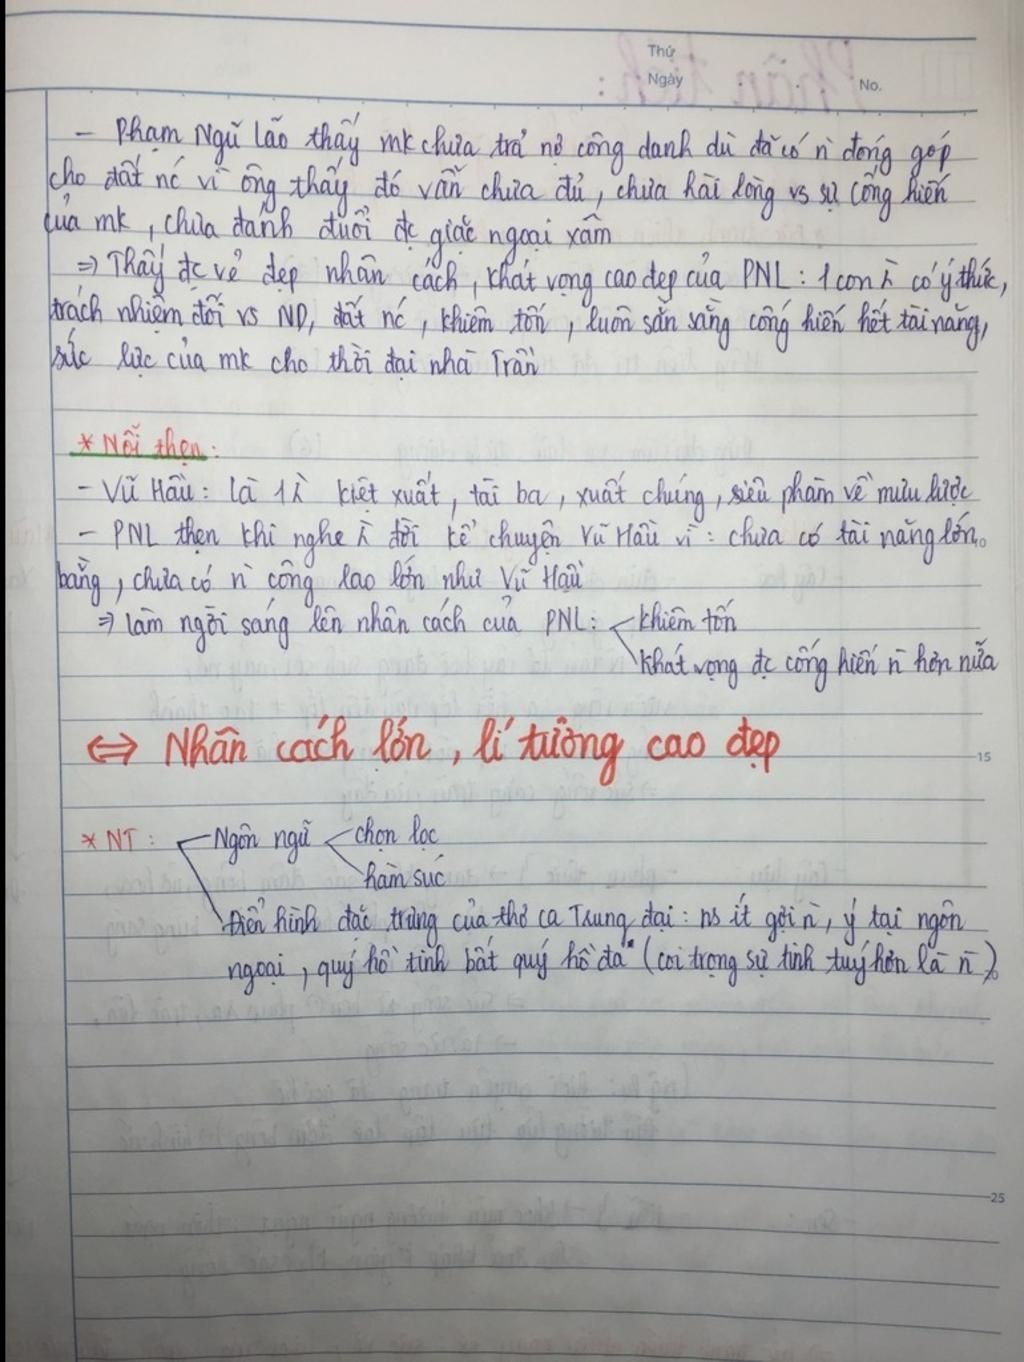 Thứ
Ngày
No.
- Phạm Ngũ Lão thấy mk chưa trả nợ công danh dù đã có n̄ đóng góp
cho đất nc vì ông thấy đó vẫn chưa đủ, chưa hài lòng vs sự cống hiến
của mk, chưa đánh đuổi đc giặc ngoại xâm
⇒ Thấy đc vẻ đẹp nhân cách, khát vọng cao đẹp của PNL: 1 con λ̀ có ý thức,
trách nhiệm đối vs ND, đất nc, khiêm tốn, luôn sẵn sàng cống hiến hết tài năng,
sức lực của mk cho thời đại nhà Trần
* Nỗi thẹn:
- Vũ Hầu: là 1 λ̀ kiệt xuất, tài ba, xuất chúng, siêu phàm về mưu lược
- PNL thẹn khi nghe λ̀ đời kể chuyện Vũ Hầu vì: chưa có tài năng lớn
bằng, chưa có n̄ công lao lớn như Vũ Hầu
⇒ làm ngời sáng lên nhân cách của PNL: khiêm tốn
khát vọng đc cống hiến n̄ hơn nữa
⇔ Nhân cách lớn, lí tưởng cao đẹp
15
* NT: Ngôn ngữ chọn lọc
hàm súc
Điển hình đặc trưng của thơ ca Trung đại: ns ít gợi n̄, ý tại ngôn
ngoại, quý hồ tinh bất quý hồ đa" (coi trọng sự tinh tuý hơn là n̄).
25